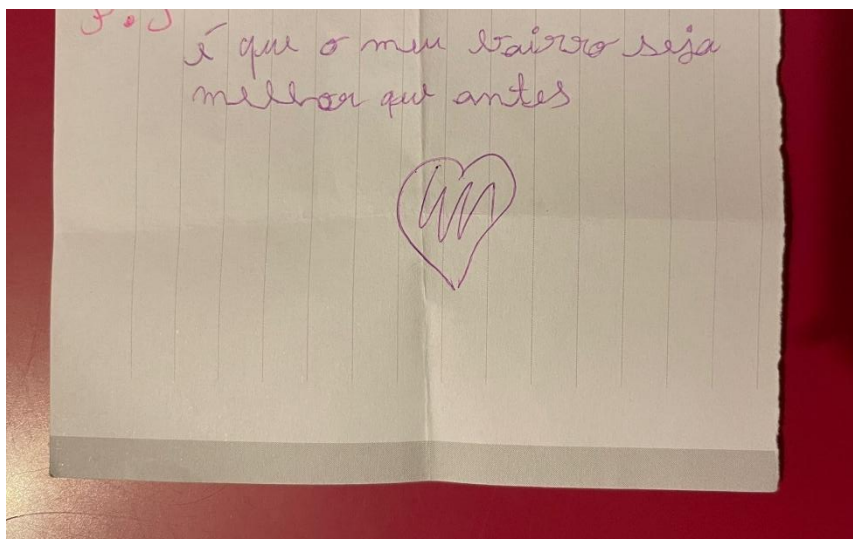 é que o meu bairro seja
melhor que antes